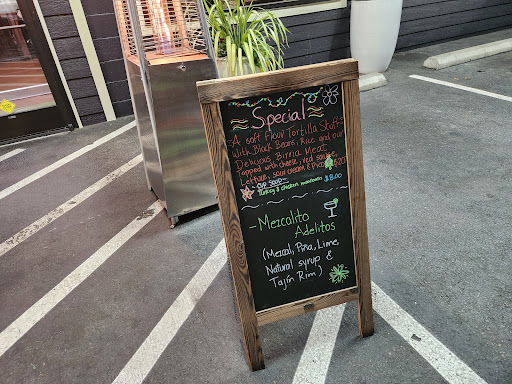 Special
A soft Flour Tortilla Stuff
With Black Beans, Rice and our
Delicious Birria Meat
Topped with cheese, red sauce,
Lettuce, sour cream & Pico $20
~ CUP SOUP ~
Turkey & chicken $8.00
- Mezcalito
Adelitos
(Mezcal, Piña, Lime,
Natural syrup &
Tajín Rim)